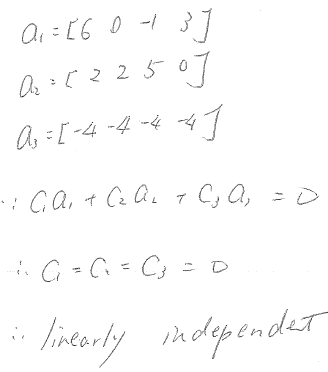 a₁ = [6 0 -1 3]
a₂ = [2 2 5 0]
a₃ = [-4 -4 -4 -4]
∵ C₁a₁ + C₂a₂ + C₃a₃ = 0
∴ C₁ = C₂ = C₃ = 0
∴ linearly independet